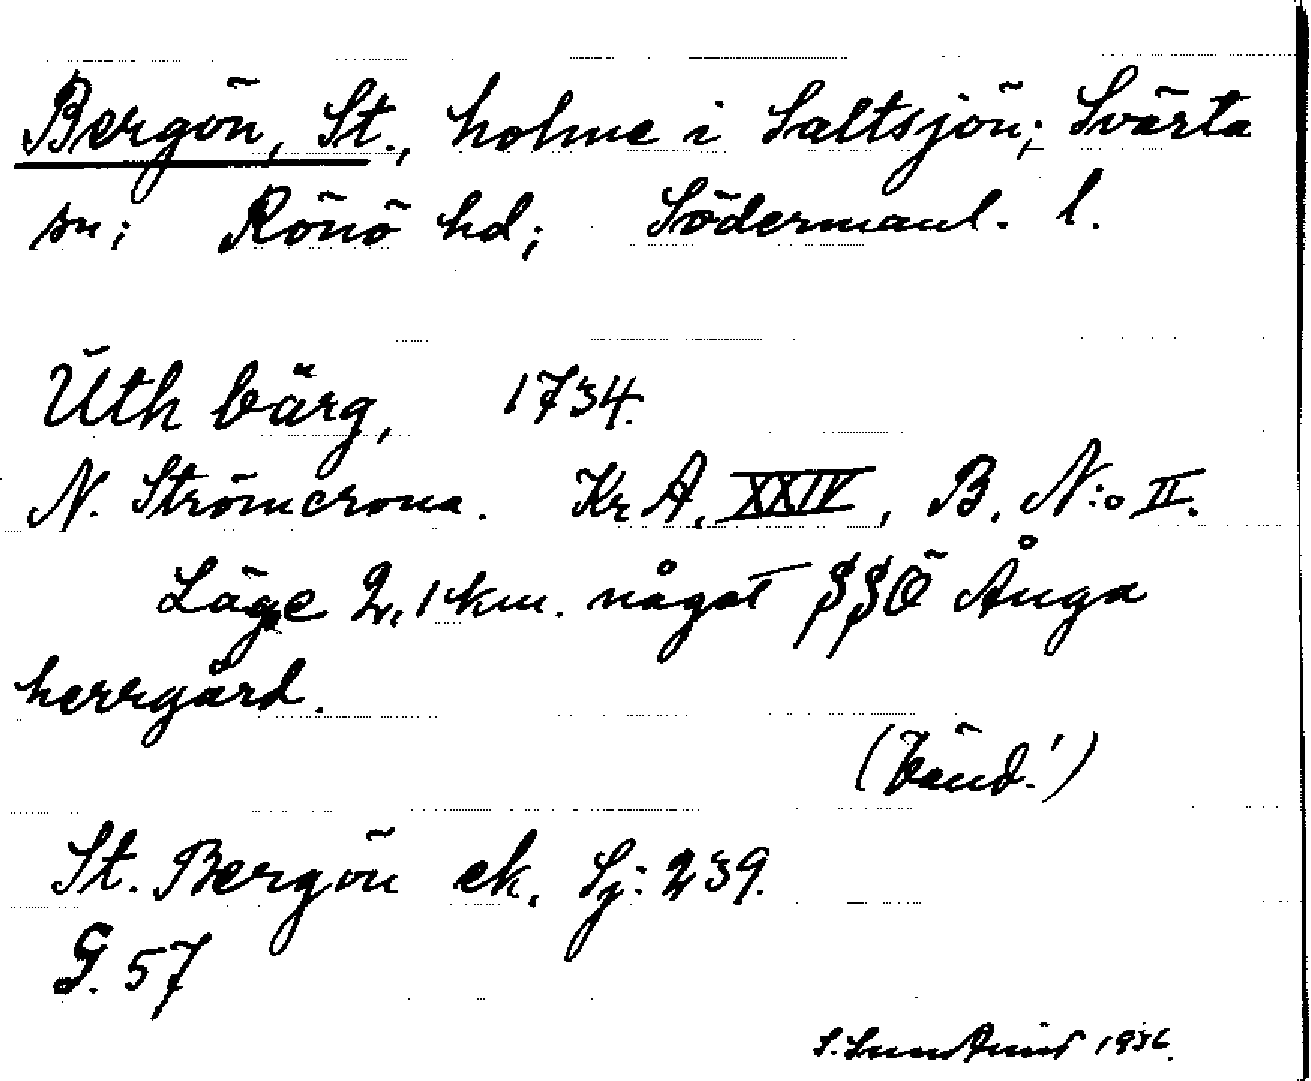 Bergön, St., holme i Saltsjön; Svärta
sn; Rönö hd; Södermanl. l.
Üth bärg, 1734.
N. Strömcrona. Kr A. XXIV, B. N:o II.
Läge 2,1 km. något SSÖ Ånga
herrgård.
(Vänd!)
St. Bergön ek. Sj: 239.
G. 57
1936.